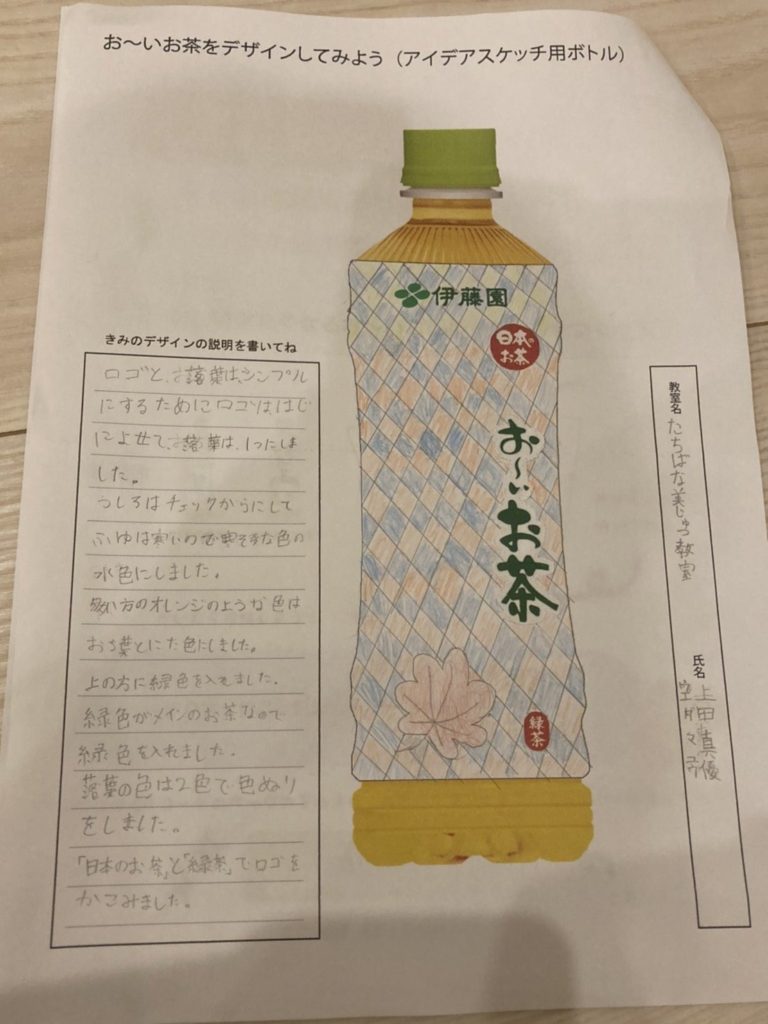 お～いお茶をデザインしてみよう（アイデアスケッチ用ボトル）
伊藤園
日本の
お茶
お～いお茶
緑茶
きみのデザインの説明を書いてね
ロゴと、お落葉は、シンプル
にするためにロゴははじ
によせて、お落葉は、1つにしま
した。
うしろはチェックがらにして
ふゆは寒いので寒そうな色の
水色にしました。
多い方のオレンジのような色は
おち葉とにた色にしました。
上の方に緑色を入れました。
緑色がメインのお茶なので
緑色を入れました。
落葉の色は2色で色ぬり
をしました。
「日本のお茶」と「緑茶」でロゴを
かこみました。
教室名
たちばな美じゅつ教室
氏名
上田真優